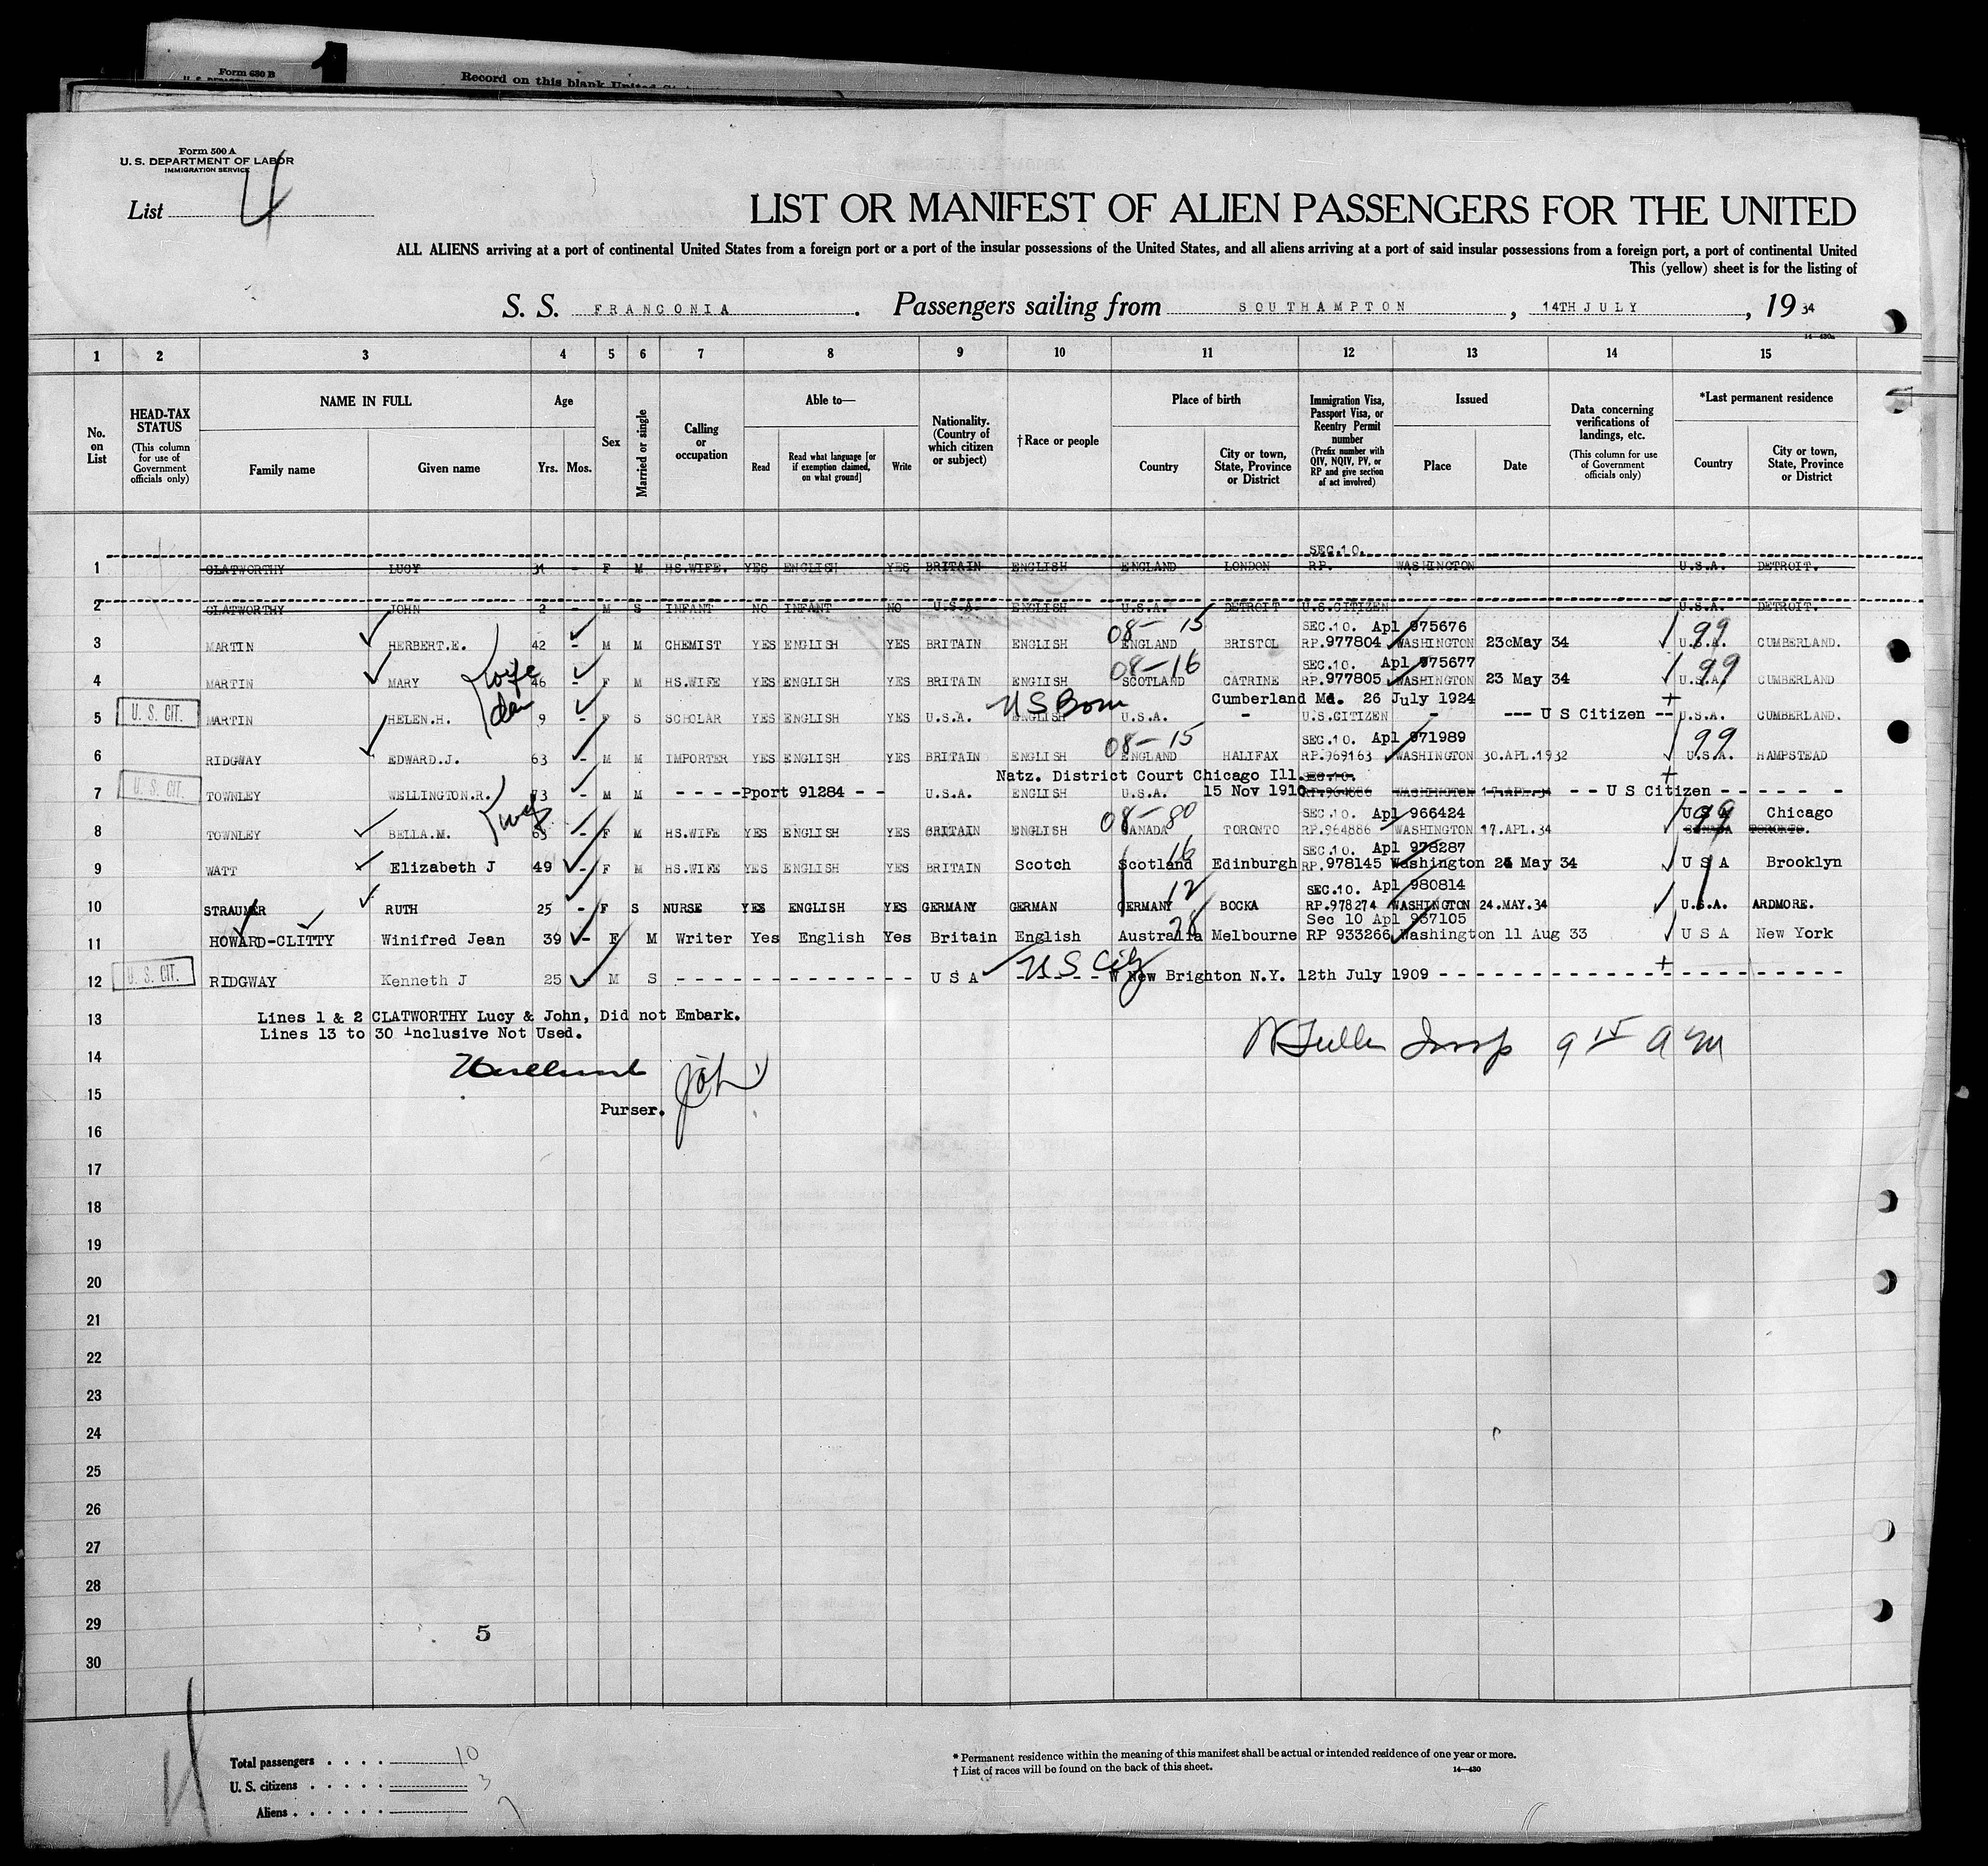 Form 630 B
Record on this blank United
1
Form 500 A
U. S. DEPARTMENT OF LABOR
IMMIGRATION SERVICE
List 4
LIST OR MANIFEST OF ALIEN PASSENGERS FOR THE UNITED
ALL ALIENS arriving at a port of continental United States from a foreign port or a port of the insular possessions of the United States, and all aliens arriving at a port of said insular possessions from a foreign port, a port of continental United
This (yellow) sheet is for the listing of
S. S. FRANCONIA. Passengers sailing from SOUTHAMPTON, 14TH JULY, 1934
1 2 3 4 5 6 7 8 9 10 11 12 13 14 15
No. on List
HEAD-TAX STATUS (This column for use of Government officials only)
NAME IN FULL Family name Given name
Age Yrs. Mos.
Sex
Married or single
Calling or occupation
Able to— Read Read what language [or if exemption claimed, on what ground] Write
Nationality. (Country of which citizen or subject)
†Race or people
Place of birth Country City or town, State, Province or District
Immigration Visa, Passport Visa, or Reentry Permit number (Prefix number with QIV, NQIV, PV, or RP and give section of act involved)
Issued Place Date
Data concerning verifications of landings, etc. (This column for use of Government officials only)
*Last permanent residence Country City or town, State, Province or District
SEC.10.
1 CLATWORTHY LUCY 31 - F M HS.WIFE. YES ENGLISH YES BRITAIN ENGLISH ENGLAND LONDON RP. WASHINGTON U.S.A. DETROIT.
2 CLATWORTHY JOHN 2 - M S INFANT NO INFANT NO U.S.A. ENGLISH U.S.A. DETROIT U.S.CITIZEN U.S.A. DETROIT.
08-15 SEC.10. Apl 975676 99
3 MARTIN HERBERT.E. 42 - M M CHEMIST YES ENGLISH YES BRITAIN ENGLISH ENGLAND BRISTOL RP.977804 WASHINGTON 23 May 34 U.S.A. CUMBERLAND.
wife 08-16 SEC.10. Apl 975677 99
4 MARTIN MARY 46 - F M HS.WIFE YES ENGLISH YES BRITAIN ENGLISH SCOTLAND CATRINE RP.977805 WASHINGTON 23 May 34 U.S.A. CUMBERLAND
dau U S Born Cumberland Md. 26 July 1924
U. S. CIT. 5 MARTIN HELEN.H. 9 - F S SCHOLAR YES ENGLISH YES U.S.A. ENGLISH U.S.A. - U.S.CITIZEN - --- U S Citizen -- U.S.A. CUMBERLAND.
08-15 SEC.10. Apl 971989 99
6 RIDGWAY EDWARD.J. 63 - M M IMPORTER YES ENGLISH YES BRITAIN ENGLISH ENGLAND HALIFAX RP.969163 WASHINGTON 30.APL.1932 U.S.A. HAMPSTEAD
Natz. District Court Chicago Ill. SEC.10.
U. S. CIT. 7 TOWNLEY WELLINGTON.R. 73 - M M - - - - Pport 91284 - - U.S.A. ENGLISH U.S.A. 15 Nov 1910 RP.964886 WASHINGTON 17.APL.34 - - U S Citizen - - - - - -
wife 08-80 SEC.10. Apl 966424 U S A 99 Chicago
8 TOWNLEY BELLA.M. 63 - F M HS.WIFE YES ENGLISH YES BRITAIN ENGLISH CANADA TORONTO RP.964886 WASHINGTON 17.APL.34 CANADA TORONTO.
16 SEC.10. Apl 978287
9 WATT Elizabeth J 49 - F M HS.WIFE YES ENGLISH YES BRITAIN Scotch Scotland Edinburgh RP.978145 Washington 25 May 34 U S A Brooklyn
12 SEC.10. Apl 980814
10 STRAUMER RUTH 25 - F S NURSE YES ENGLISH YES GERMANY GERMAN GERMANY BOCKA RP.978274 WASHINGTON 24.MAY.34 U.S.A. ARDMORE.
28 Sec 10 Apl 937105
11 HOWARD-CLITTY Winifred Jean 39 - F M Writer Yes English Yes Britain English Australia Melbourne RP 933266 Washington 11 Aug 33 U S A New York
U S City
U. S. CIT. 12 RIDGWAY Kenneth J 25 M S - - - - - - - - - - - - - - U S A - - - - - W New Brighton N.Y. 12th July 1909 - - - - - - - - - - - - - - - - - - - - - - - -
13 Lines 1 & 2 CLATWORTHY Lucy & John, Did not Embark.
Lines 13 to 30 Inclusive Not Used.
Fuller Insp 9 15 am
14
15 Purser.
16
17
18
19
20
21
22
23
24
25
26
27
28
29 5
30
4
Total passengers . . . . 10
U. S. citizens . . . . . 3
Aliens . . . . . . 7
* Permanent residence within the meaning of this manifest shall be actual or intended residence of one year or more.
† List of races will be found on the back of this sheet. 14—430